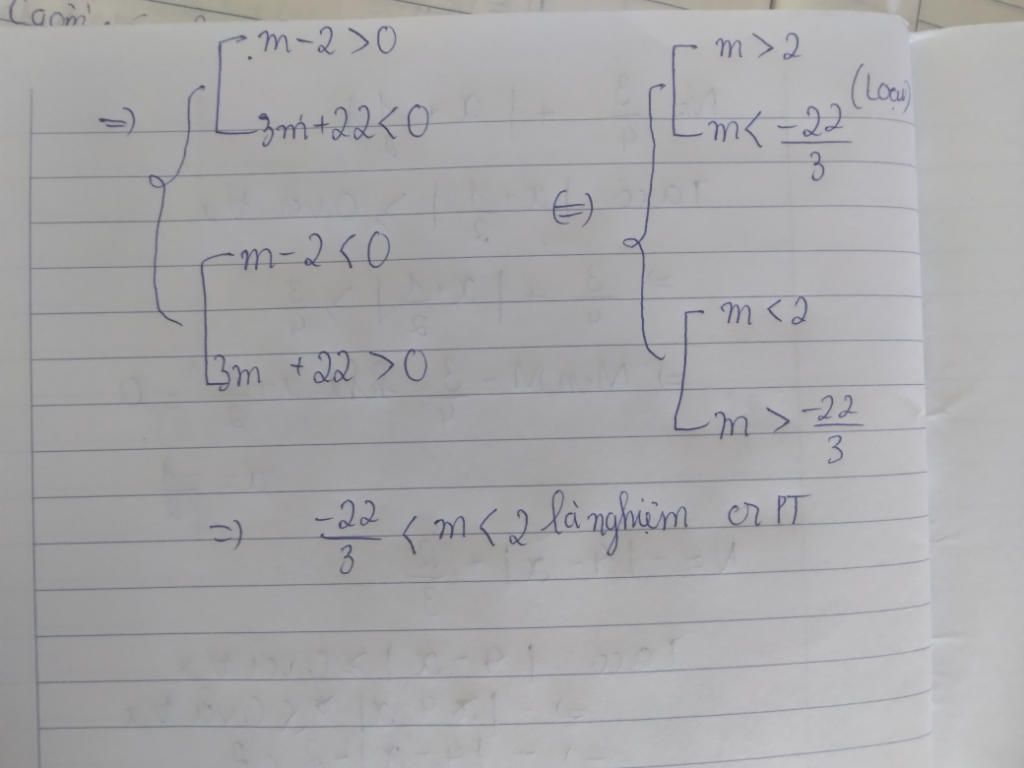 m-2>0
=> 3m+22<0
m-2<0
3m +22>0
<=>
m>2
m< -22/3 (Loại)
m<2
m > -22/3
=> -22/3 < m < 2 là nghiệm PT